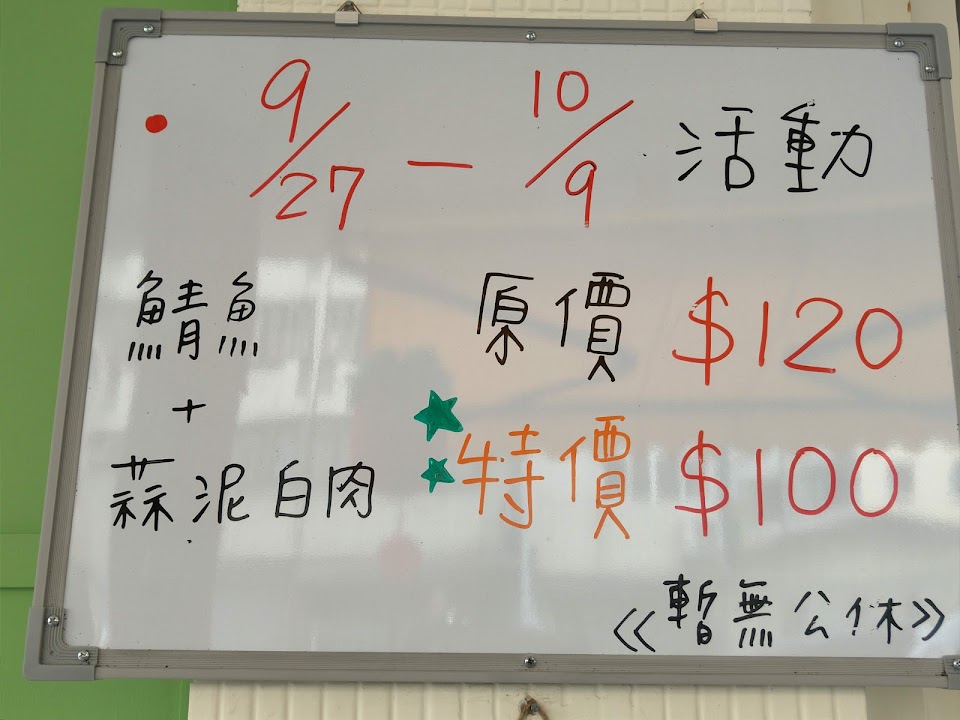 • 9/27 — 10/9 活動
鯖魚
+
蒜泥白肉
原價 $120
特價 $100
《暫無公休》